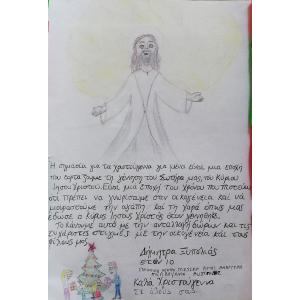 Η σημασία για τα χριστούγενα για μένα είναι μια εποχή
που εορτάζουμε τη γέννηση του Σωτήρα μας, του Κυρίου
Ιησού Χριστού. Είναι μια εποχή του χρόνου που πιστεύω
ότι πρέπει να γνωρίσουμε στην οικογένεια και να
μοιραστούμε την αγάπη και τη χαρά όπως μας
έδωσε ο κύριος Ιησούς Χριστός όταν γεννήθηκε.
Το κάνουμε αυτό με την ανταλλαγή δώρων και τις
ευχάριστες στιγμές με την οικογένεια και τους
φίλους μας.
Δήμητρα
ετών 10
Καλά Χριστούγεννα
σε όλους σας